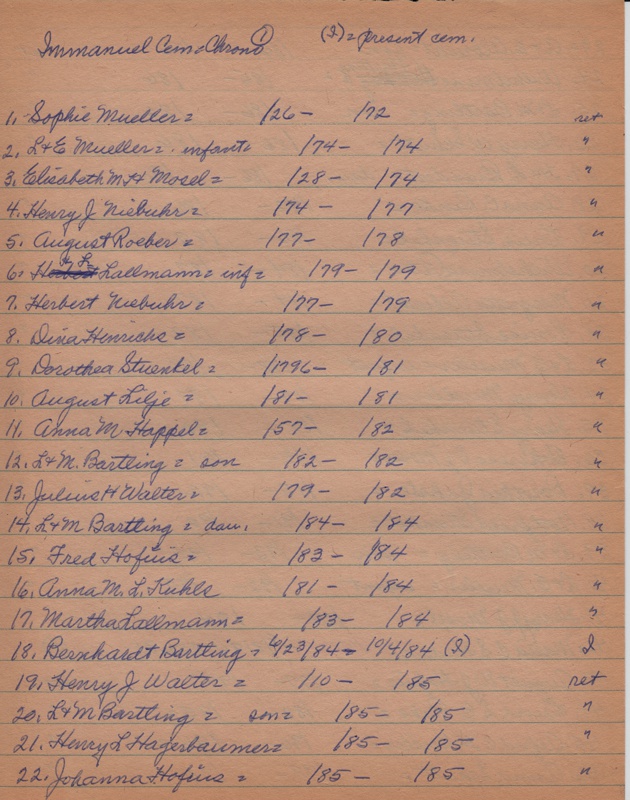 Immanuel Cem = Chrono ① (I) = present cem.
1. Sophie Mueller = /26 – /72 ret
2. L+E Mueller = infant = /74 – /74 "
3. Elisabeth Mosel = /28 – /74 "
4. Henry J Niebuhr = /74 – /77 "
5. August Roeber = /77 – /78 "
6. Lallmann = inf = /79 – /79 "
7. Herbert Niebuhr = /77 – /79 "
8. Dina Henrichs = /78 – /80 "
9. Dorothea Stuenkel = /1796 – /81 "
10. August Lilje = /81 – /81 "
11. Anna M Happel = /57 – /82 "
12. L+M. Bartling = son /82 – /82 "
13. Julius H Walter = /79 – /82 "
14. L+M Bartling = dau. /84 – /84 "
15. Fred Hofius = /83 – /84 "
16. Anna M. L. Kuhls /81 – /84 "
17. Martha Lallmann = /83 – /84 "
18. Bernhardt Bartling = 6/23/84 – 10/4/84 (I) I
19. Henry J Walter = /10 – /85 ret
20. L+M Bartling = son = /85 – /85 "
21. Henry L Hagerbaumer = /85 – /85 "
22. Johanna Hofius = /85 – /85 "